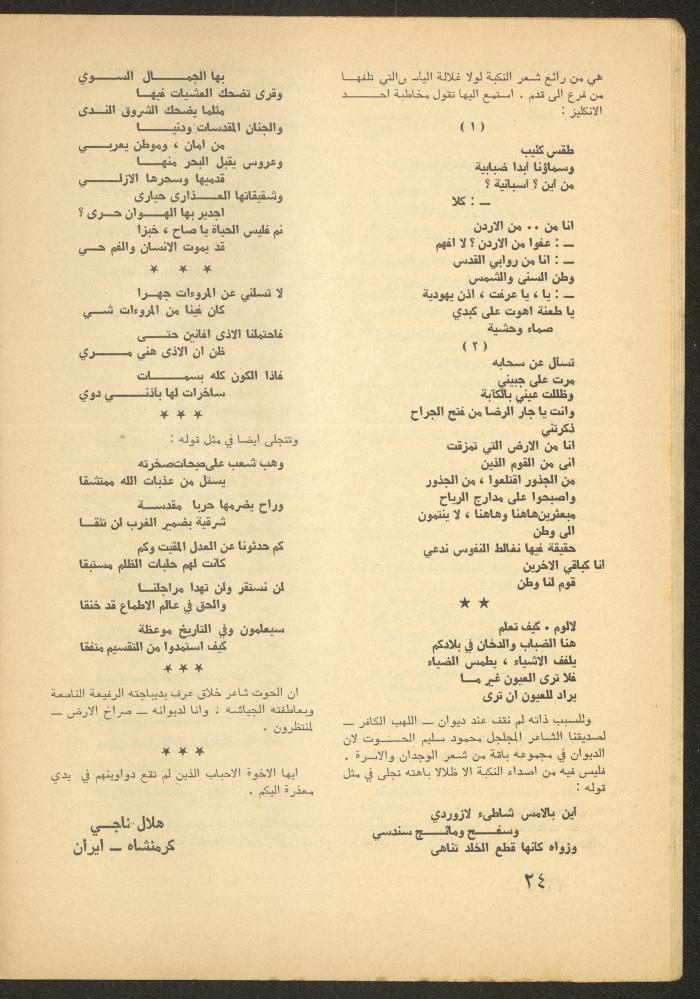 هي من رائع شعر النكبة لولا غلالة اليأس والتي تلفها
من فرع الى قدم . استمع اليها تقول مخاطبة احد
الانكليز :
( ١ )
طقس كئيب
وسماؤنا أبدا ضبابية
من أين ؟ أسبانية ؟
— : كلا
انا من .. من الاردن
— : عفوا من الاردن ؟ لا افهم
— : انا من روابي القدس
وطن السنى والشمس
— : يا ، يا عرفت ، اذن يهودية
يا طعنة اهوت على كبدي
صماء وحشية
( ٢ )
تسأل عن سحابه
مرت على جبيني
وظللت عيني بالكآبة
وانت يا جار الرضا من فتح الجراح
ذكرتني
انا من الارض التي تمزقت
انى من القوم الذين
من الجذور اقتلعوا ، من الجذور
واصبحوا على مدارج الرياح
مبعثرين هاهنا وهاهنا ، لا ينتمون
الى وطن
حقيقة فيها نغالط النفوس ندعي
أنا كباقي الاخرين
قوم لنا وطن
★ ★
لالوم . كيف تعلم
هنا الضباب والدخان في بلادكم
يلفف الاشياء ، يطمس الضياء
فلا ترى العيون غير ما
يراد للعيون ان ترى
وللسبب ذاته لم نقف عند ديوان — اللهب الكافر —
لصديقنا الشاعر المجلجل محمود سليم الحوت لان
الديوان في مجموعه باقة من شعر الوجدان والاسرة .
فليس فيه من اصداء النكبة الا ظلالا باهته تجلى في مثل
قوله :
أين بالامس شاطىء لازوردي
وسفح ومائج سندسي
وزواه كأنها قطع الخلد تناهى
بها الجمال السوي
وقرى تضحك العشيات فيها
مثلما يضحك الشروق الندى
والجنان المقدسات ودنيا
من امان ، وموطن يعربي
وعروس يقبل البحر منها
قدميها وسحرها الازلي
وشقيقاتها العذارى حيارى
اجدير بها الهوان حرى ؟
نم فليس الحياة يا صاح ، خبزا
قد يموت الانسان والفم حي
★ ★ ★
لا تسلني عن المروءات جهرا
كان فينا من المروءات شي
فاحتملنا الاذى افانين حتى
ظن ان الاذى هني مري
فاذا الكون كله بسمات
ساخرات لها بأذني دوي
★ ★ ★
وتتجلى ايضا في مثل قوله :
وهب شعب على صيحات صخرته
يستل من عذبات الله ممتشقا
وراح يضرمها حربا مقدسة
شرقية بضمير الغرب لن تثقا
كم حدثونا عن العدل المقيت وكم
كانت لهم حلبات الظلم مستبقا
لن نستقر ولن تهدا مراجلنا
والحق في عالم الاطماع قد خنقا
سيعلمون وفي التاريخ موعظة
كيف استمدوا من التقسيم متفقا
★ ★ ★
ان الحوت شاعر خلاق عرف بديباجته الرفيعة الناصعة
وبعاطفته الجياشه ، وانا لديوانه — صراخ الارض —
لمنتظرون .
★ ★ ★
ايها الاخوة الاحباب الذين لم تقع دواوينهم في يدي
معذرة اليكم .
هلال ناجي
كرمنشاه — ايران
٢٤